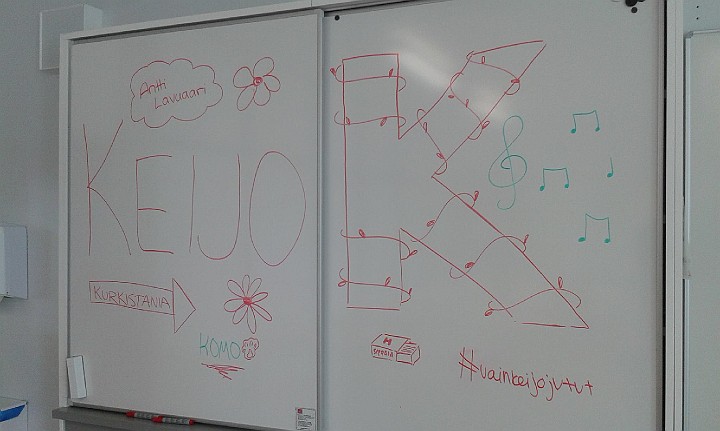 Antti
Lavuaari
KEIJO
KURKISTANIA
KOMO
K
H
#vainkeijojutut